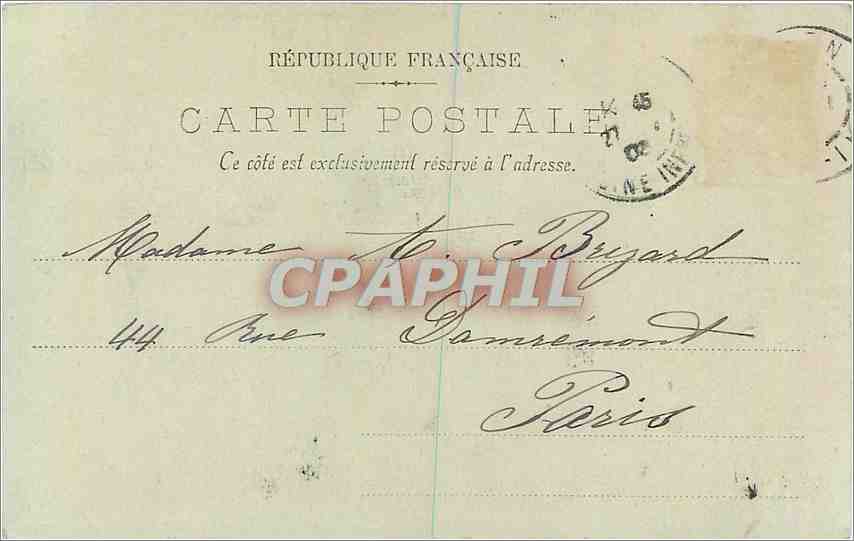 RÉPUBLIQUE FRANÇAISE
CARTE POSTALE
Ce côté est exclusivement réservé à l'adresse.
Madame A. Bryard
CPAPHIL
44 Rue Damrémont
Paris